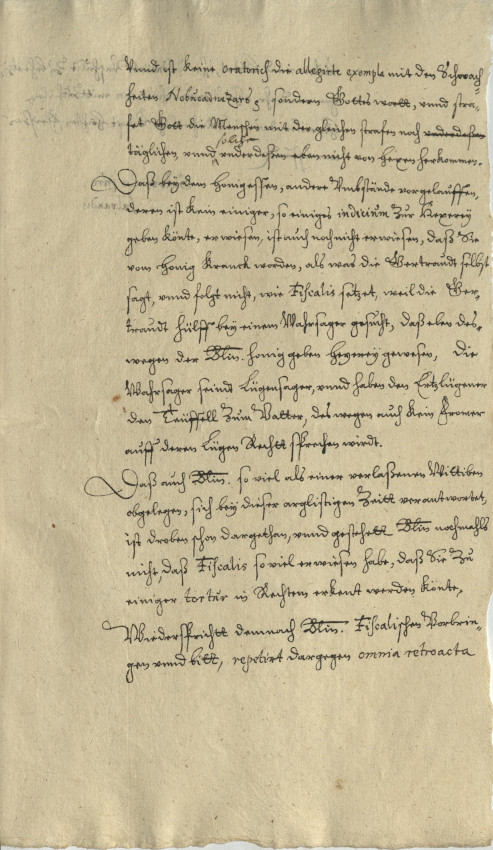 Vnnd ist keine oratorich die allegirte exempla mit den Schwach-
heiten Nobucadnezars, sondern Gottes wortt, vnnd stra-
fet Gott die Menschen mit der gleichen strafen noch vnderdesen
solche
täglichen, vnnd vnderdeßen eben nicht von hexen herkommen.
Daß bey dem honigessen, andere Vmbstände vorgelauffen,
deren ist kein einiger, so einiges indicium zur Hexerey
geben könte, erwiesen, ist auch noch nicht erwiesen, daß Sie
vom honig kranck worden, als was die Gertraudt selbst
sagt, vnnd folgt nicht, wie Fiscalis setzet, weil die Ger-
traudt hülff bey einem Wahrsager gesucht, daß eben des-
wegen der Bklin. honig geben hexerey gewesen, Die
Wahrsager seindt Lügensager, vnnd haben den Ertzlügener
den Teüffell zum Vatter, deswegen auch kein fromer
auff deren Lügen Rechtt sprechen wirdt.
Daß auch Bklin. so viel als einer verlaßenen Wittiben
obgelegen, sich bey dieser arglistigen Zeitt verantwortet,
ist droben schon dargethan, vnnd gestehett Bklin nochmahls
nicht, daß Fiscalis so viel erwiesen habe, daß Sie zu
einiger tortur in Rechtem erkent werden könte,
Wiederspricht demnach Bklin. Fiscalischen Vorbrin-
gen vnnd bitt, repetirt dargegen omnia retroacta